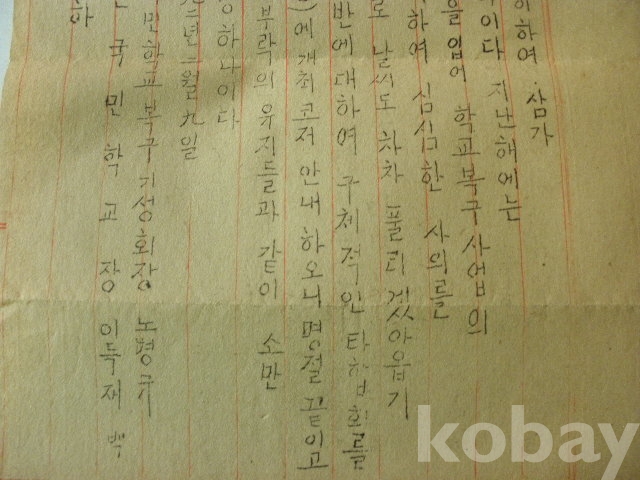 하여 삼가
이다 지난해에는
을 입어 학교복구사업의
하여 심심한 사의를
로 날씨도 차차 풀리겠아옵기
반에대하여 구체적인 타합회를
에 개최코저 안내하오니 명절끝이고
부락의 유지들과 같이 소만
하나이다
년 월 九일
민학교복구기성회장 노병규
국민학교장 이득재 백
kobay